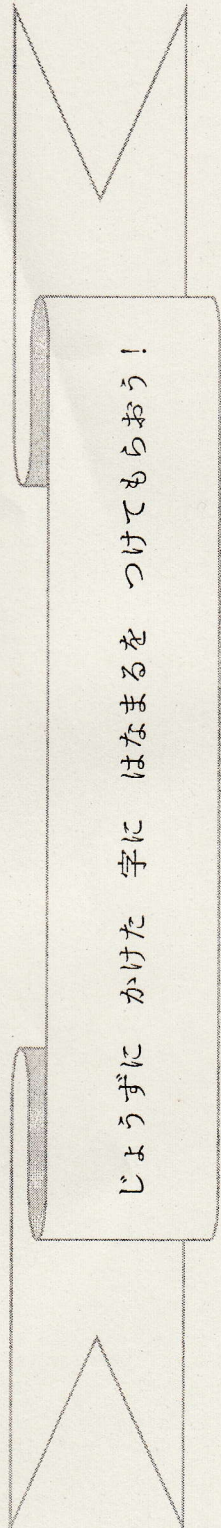 じょうずに　かけた　字に　はなまるを　つけてもらおう！